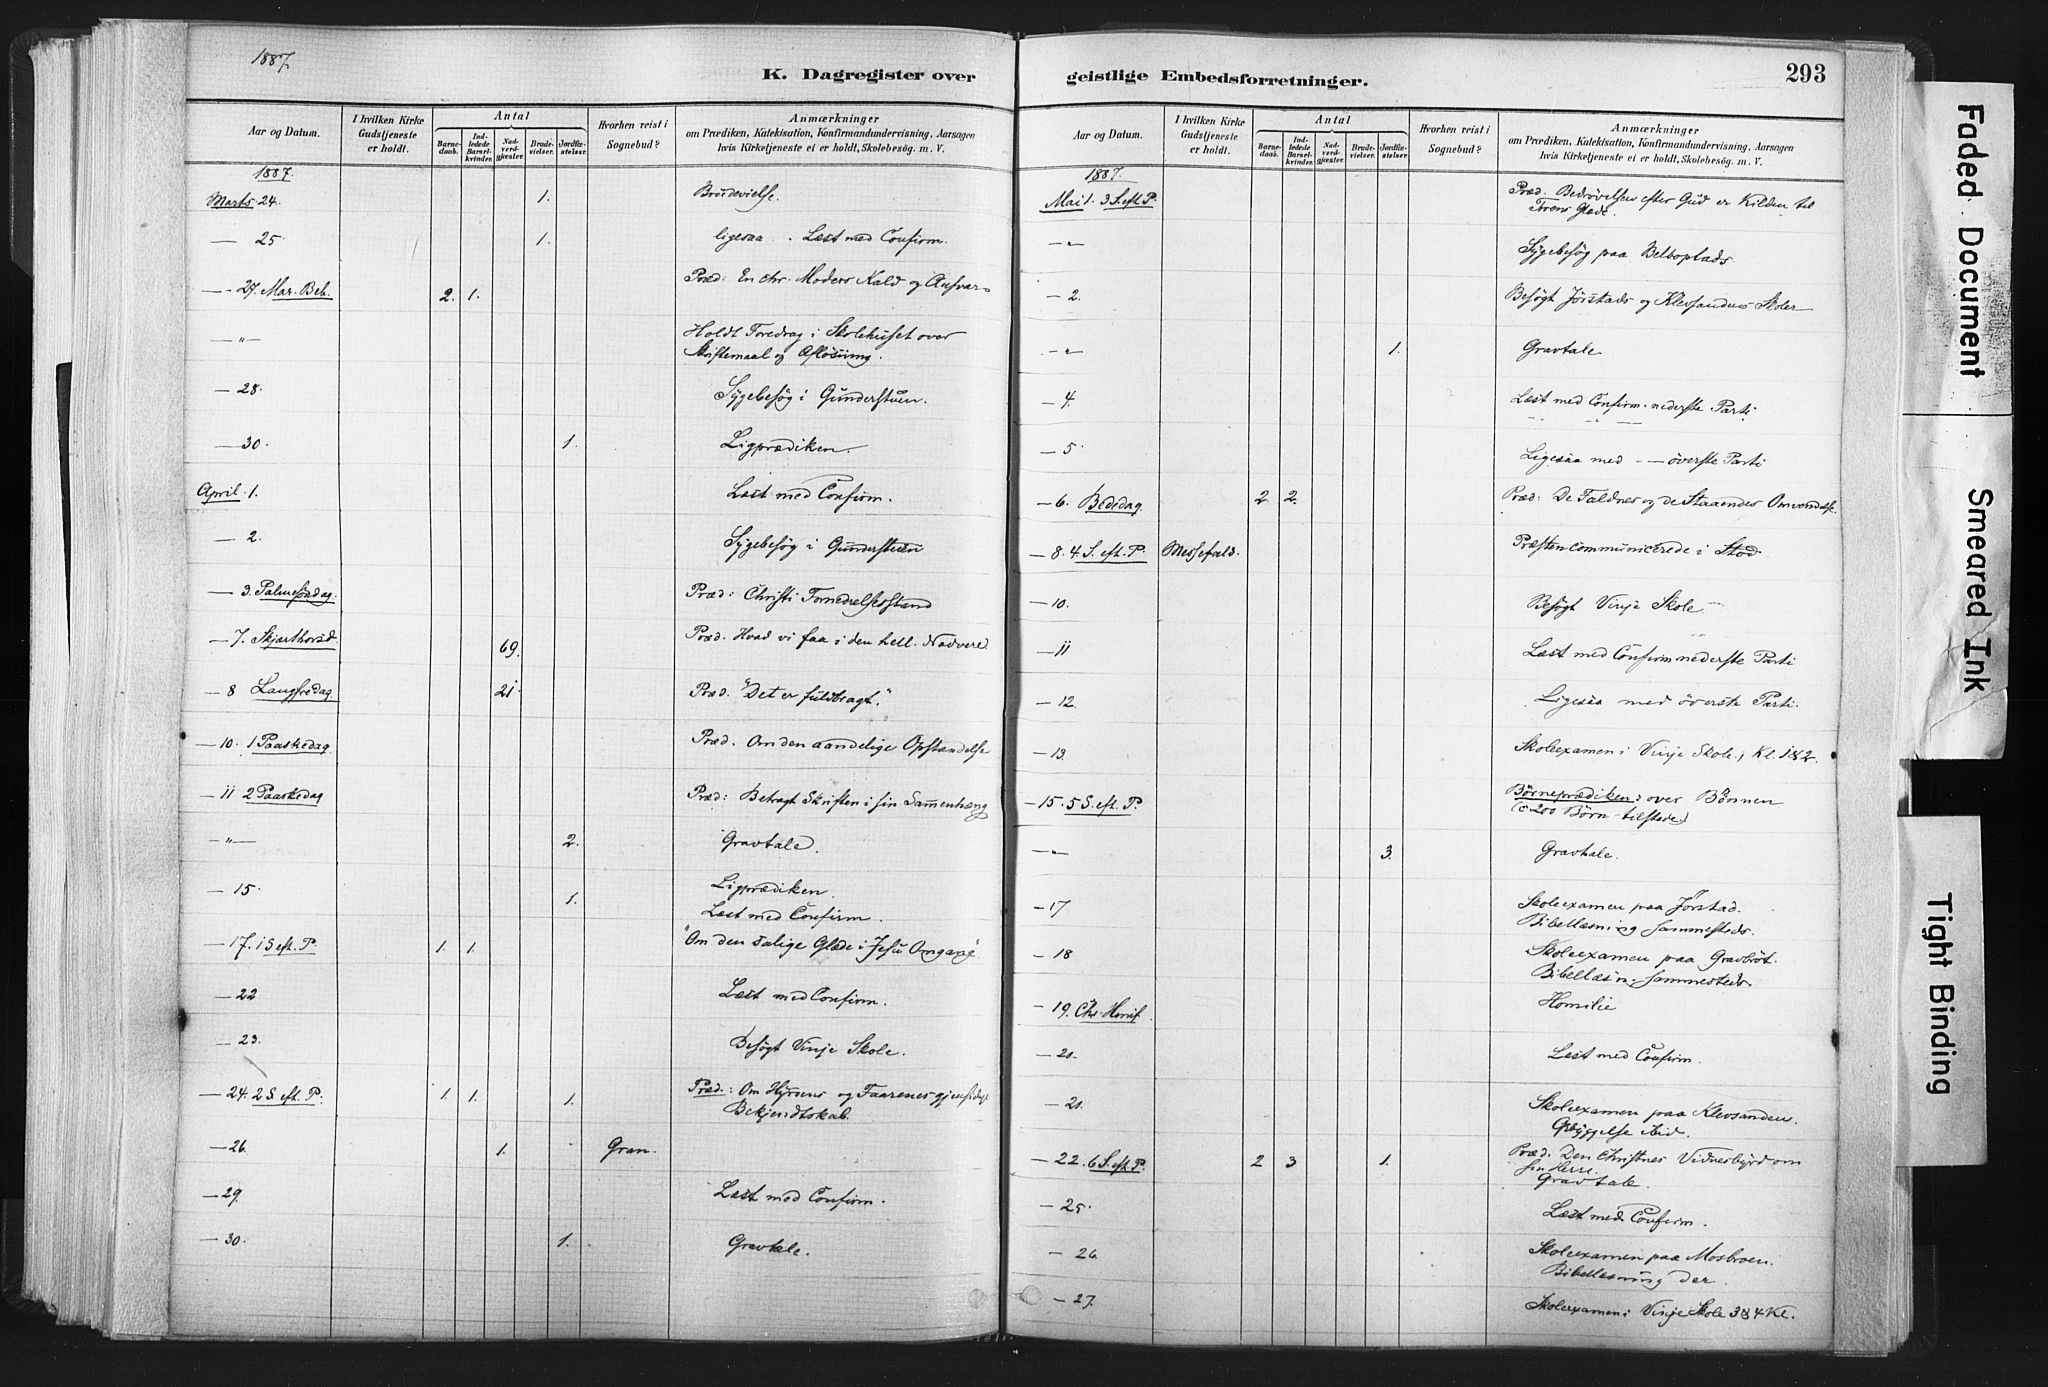 1887.
K. Dagregister over
Aar og Datum.
I hvilken Kirke Gudstjeneste er holdt.
Antal
Barnedaab.
Indledede Barselkvinder.
Nadverdgjester.
Brudevielser.
Jordfæstelser.
Hvorhen reist i Sognebud?
Anmærkninger
om Prædiken, Katekisation, Konfirmandundervisning, Aarsagen
hvis Kirketjeneste ei er holdt, Skolebesøg. m. V.
1887.
Marts 24. 1. Brudevielse.
— 25. 1. ligesaa . Læst med Confirm.
— 27. Mar. Beb. 2. 1. Præd: En chr. Moders Kald og Ansvar
— " — Holdt Foredrag i Skolehuset over
Skriftemaal og Afløsning.
— 28. Sygebesøg i Gunderstuen.
— 30. 1. Ligprædiken.
April 1. Læst med Confirm.
— 2. Sygebesøg i Gunderstuen
— 3. Palmesødag. Præd: Christi Fornedrelsesstand
— 7. Skjærthorsd 69. Præd. Hvad vi faa i den hell. Nadvere
— 8 Langfredag. 21 Præd. "Det er fuldbragt".
— 10. 1 Paaskedag. Præd. Om den aandelige Opstandelse
— 11 2 Paaskedag Præd: Betragt Skriften i sin Sammenhæng
— " — 2. Gravtale.
— 15. 1. Ligprædiken.
Læst med Confirm.
— 17. 1 S. eft. P. 1. 1. "Om den salige Glæde i Jesu Omgang"
— 22 Læst med Confirm.
— 23. Besøgt Vinje Skole.
— 24. 2 S. eft. P. 1. 1. 1. Præd.: Om Hyrdens og Faarenes gjensidige
Bekjendtskab.
— 26. 1. Gran.
— 29. Læst med Confirm.
— 30. 1. Gravtale.
geistlige Embedsforretninger.
293
Aar og Datum.
I hvilken Kirke Gudstjeneste er holdt.
Antal
Barnedaab.
Indledede Barselkvinder.
Nadverdgjester.
Brudevielser.
Jordfæstelser.
Hvorhen reist i Sognebud?
Anmærkninger
om Prædiken, Katekisation, Konfirmandundervisning, Aarsagen
hvis Kirketjeneste ei er holdt, Skolebesøg. m. V.
1887.
Mai 1. 3 S. eft P. Præd. Bedrøvelsen efter Gud er Kilden til
Troens Glæde.
— " — Sygebesøg paa Belboplads.
— 2. Besøgt Jørstads og Klevsandens Skoler
— " — 1. Gravtale.
— 4. Læst med Confirm. nederste Parti
— 5 Ligesaa med — — øverste Parti
— 6. Bededag 2. 2. Præd: De Faldnes og de Staaendes Omvendelse.
— 8. 4 S. eft. P. Messefald. Præsten communicerede i Stod
— 10. Besøgt Vinje Skole
— 11 Læst med Confirm nederste Parti
— 12. Ligesaa med øverste Parti.
— 13. Skoleexamen i Vinje Skole, Kl. 1 & 2.
— 15. 5 S. eft. P. Børneprædiken: over Bønnen
(c. 200 Børn tilstede)
— " — 3. Gravtale.
— 17 Skoleexamen paa Jørstad.
Bibellæsning sammesteds.
— 18 Skoleexamen paa Gravbröt.
Bibellæsn. sammesteds.
— 19. Chr. Himf. Homilie
— 20. Læst med Confirm.
— 21. Skoleexamen paa Klevsanden.
Opbyggelse ibid.
— 22. 6 S. eft P. 2 3 1. Præd. Den Christnes Vidnesbyrd om
sin Herre.
Gravtale.
— 25. Læst med Confirm.
— 26. Skoleexamen paa Mosbroen.
Bibellæsning der.
— 27. Skoleexamen i Vinje Skole 3 & 4 Kl.
Faded Document
Smeared Ink
Tight Binding